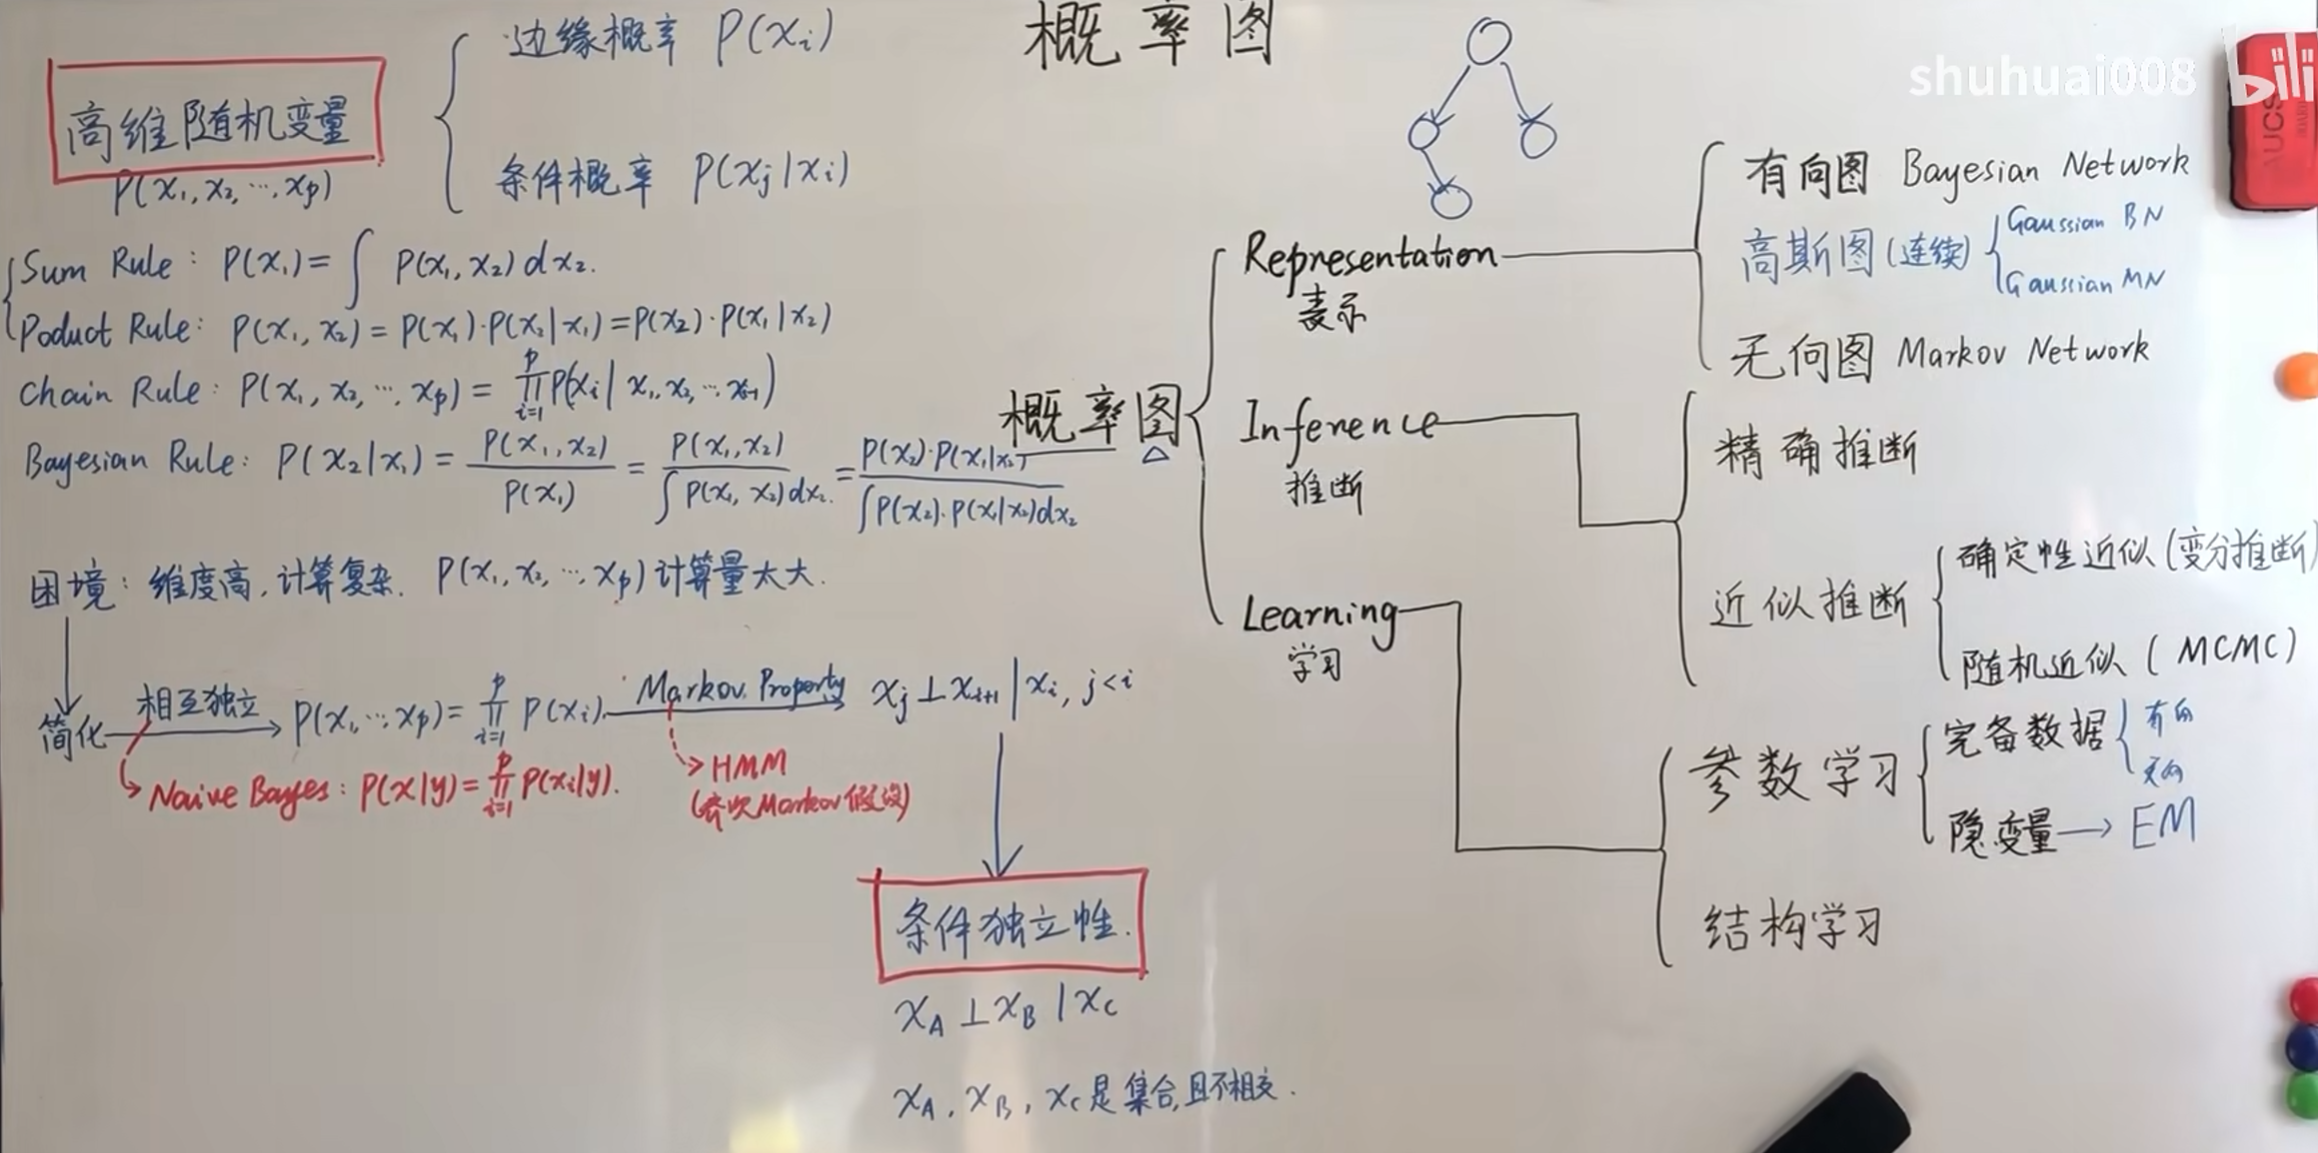 概率图
shuhuai008 bilibili
AUCS
高维随机变量
P(x₁, x₂, …, xₚ)
边缘概率 P(xᵢ)
条件概率 P(xⱼ|xᵢ)
Sum Rule: P(x₁) = ∫ P(x₁, x₂) dx₂.
Poduct Rule: P(x₁, x₂) = P(x₁)·P(x₂|x₁) = P(x₂)·P(x₁|x₂)
Chain Rule: P(x₁, x₂, …, xₚ) = ∏ᵢ₌₁ᵖ P(xᵢ | x₁, x₂, … xᵢ₋₁)
Bayesian Rule: P(x₂|x₁) = P(x₁, x₂) / P(x₁) = P(x₁, x₂) / ∫ P(x₁, x₂) dx₂. = P(x₂)·P(x₁|x₂) / ∫ P(x₂)·P(x₁|x₂) dx₂
困境: 维度高, 计算复杂. P(x₁, x₂, …, xₚ) 计算量太大.
简化 相互独立 P(x₁, …, xₚ) = ∏ᵢ₌₁ᵖ P(xᵢ). Markov Property xⱼ ⊥ xᵢ₊₁ | xᵢ, j < i
Naive Bayes: P(x|y) = ∏ᵢ₌₁ᵖ P(xᵢ|y).
HMM
(齐次Markov假设)
条件独立性.
x_A ⊥ x_B | x_C
x_A, x_B, x_C 是集合, 且不相交.
概率图
Representation
表示
有向图 Bayesian Network
高斯图 (连续)
Gaussian BN
Gaussian MN
无向图 Markov Network
Inference
推断
精确推断
近似推断
确定性近似 (变分推断)
随机近似 (MCMC)
Learning
学习
参数学习
完备数据
有向
无向
隐变量 → EM
结构学习